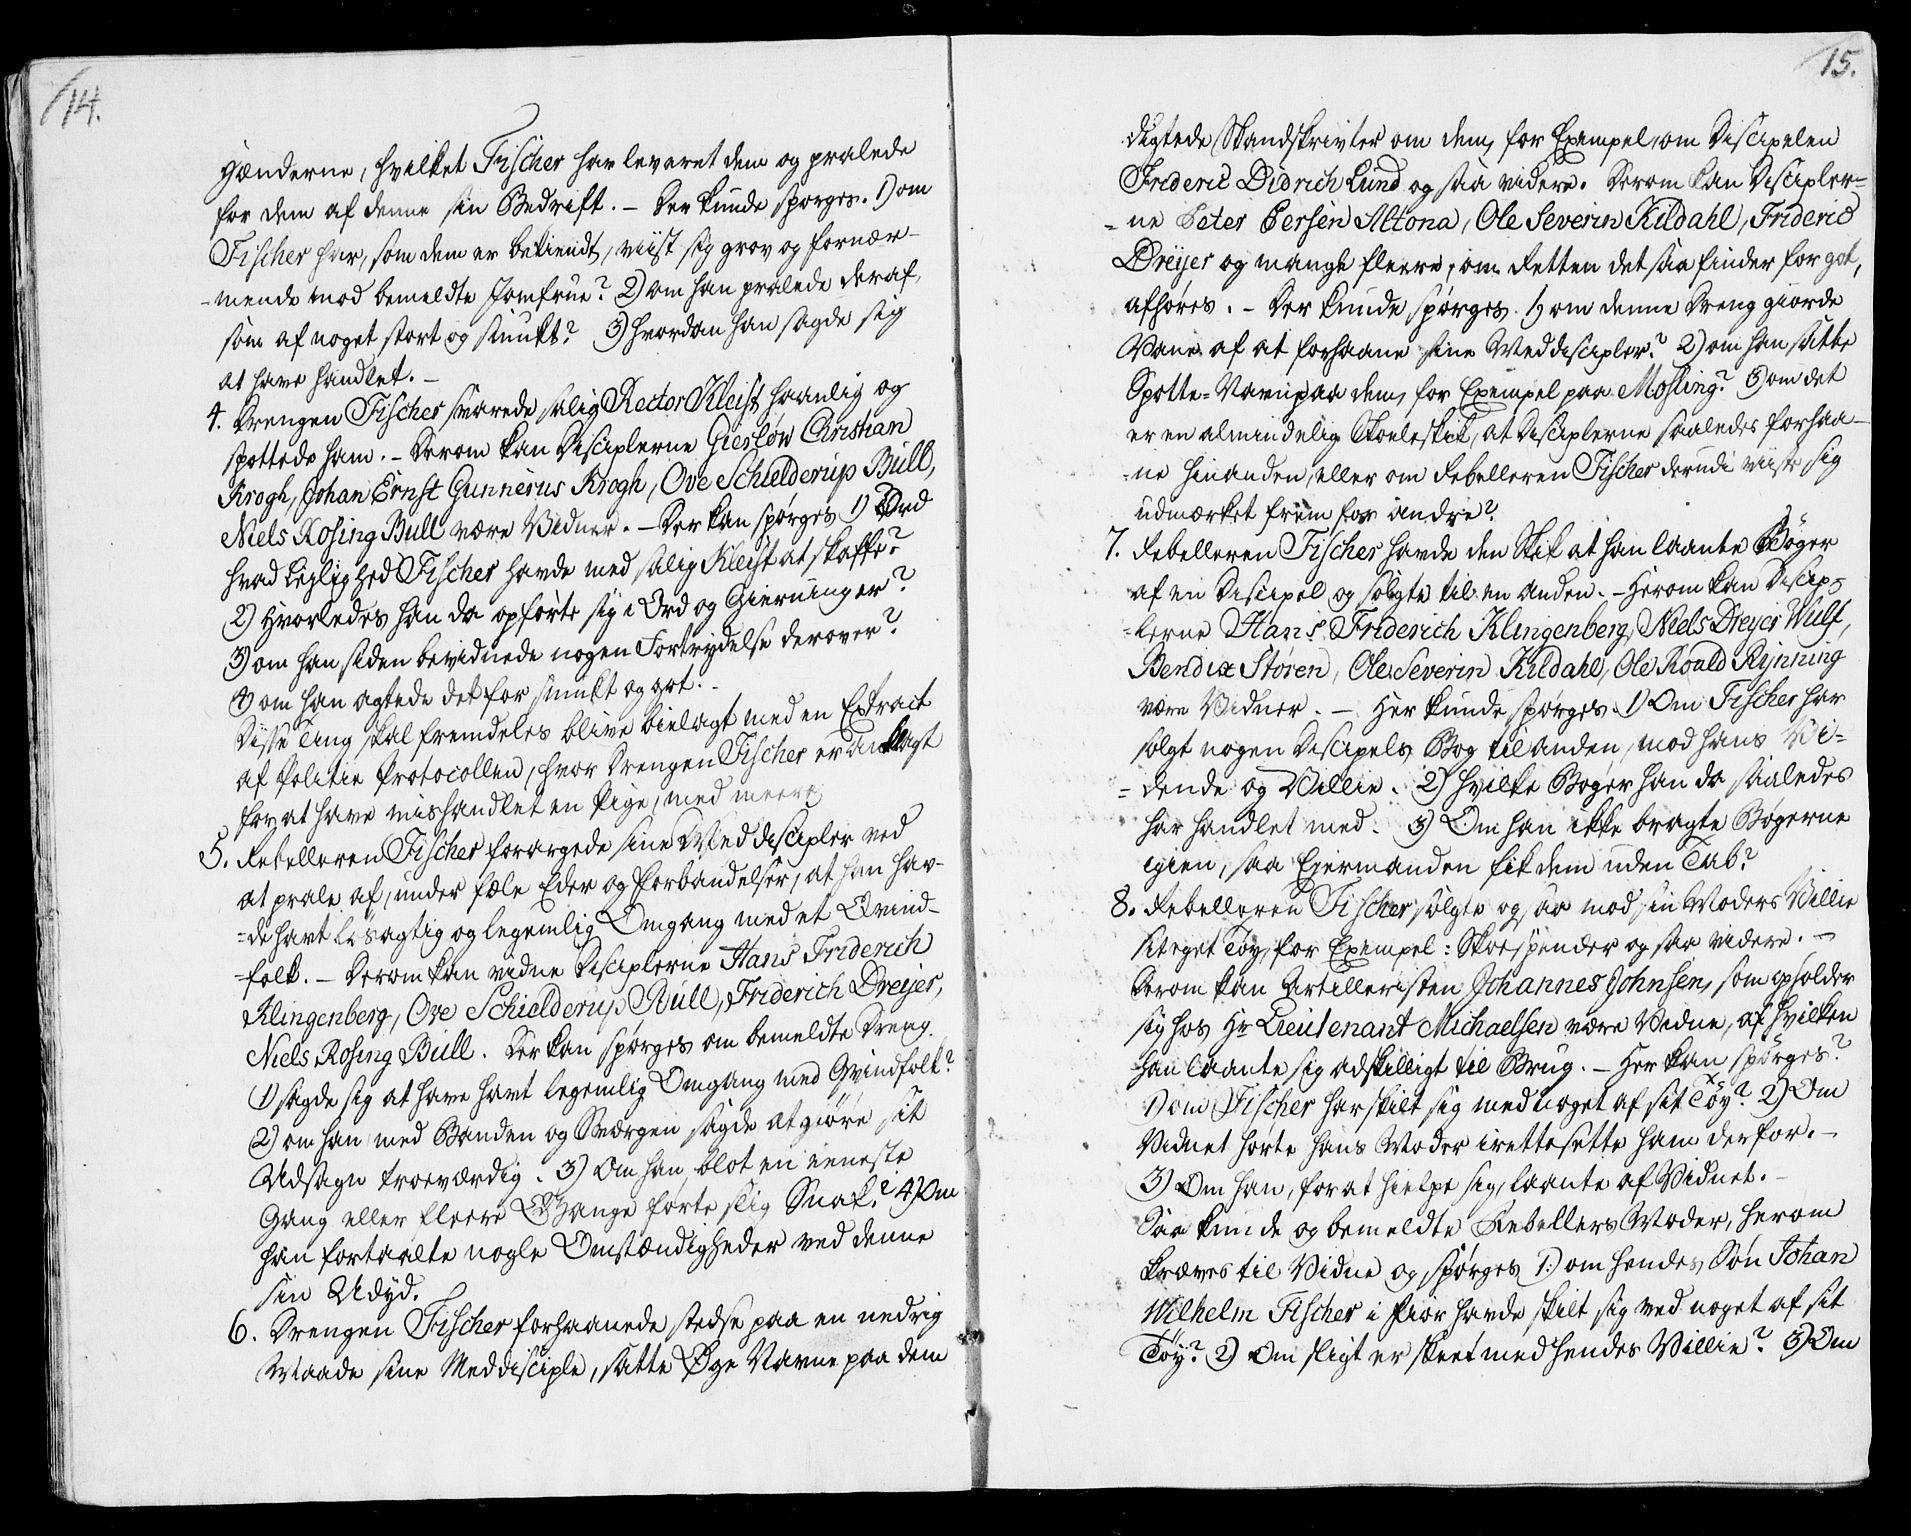 14.
Hænderne, hvilket Fischer har levaret dem og pralede
for dem af denne sin Bedrift. – Der kunde spørges. 1) om
Fischer har, som dem er bekiendt, viist sig grov og fornær-
-mende mod bemeldte Jomfrue? 2) om han pralede deraf,
som af noget stort og smukt? 3) hvordan han sagde sig
at have handlet. –
4. Drengen Fischer svarede salig Rector Kleist haanlig og
spottede ham. – Derom kan Disciplerne Gierløw Christian
Krogh, Johan Ernst Gunnerus Krogh, Ove Schielderup Bull,
Niels Rosing Bull være Vidner. – Der kan spørges 1) Ved
hvad Leylighed Fischer havde med salig Kleist at skaffe?
2) Hvorledes han da opførte sig i Ord og Gierninger?
3) om han siden bevidnede nogen Fortrydelse derover?
4) om han agtede det for smukt og got. –
Disse Ting skal fremdeles blive bielagt med en Extract
af Politie Protocollen, hvor Drengen Fischer er anklagt
for at have mishandlet en Pige, med meere
5. Rebelleren Fischer forargede sine Meddiscipler ved
at prale af, under fæle Eder og Forbandelser, at han hav-
=de havt løsagtig og legemlig Omgang med et Qvind-
-folk. – Derom kan vidne Disciplerne Hans Friderich
Klingenberg, Ove Schielderup Bull, Friderich Dreyer,
Niels Rosing Bull. Der kan spørges om bemeldte Dreng
1) sagde sig at have havt legemlig Omgang med Qvindfolk?
2) om han med Banden og Sværgen sagde at giøre sit
Udsagn troeværdig. 3) Om han blot en eneste
Gang eller fleere Gange førte slig Snak? 4) Om
han fortaalte nogle Omstændigheder ved denne
sin Udyd.
6. Drengen Fischer forhaanede stedse paa en nedrig
Maade sine Meddisciple, satte Øge Navne paa dem
15.
digtede Skandskrivter om dem, for Exempel, om Discipelen
Frideric Didrich Lund og saa videre. Derom kan Discipler=
=ne Peter Persen Altona, Ole Severin Kildahl, Frideric
Dreyer og mange fleere, om Retten det saa finder for got,
afhøres. – Der kunde spørges. 1) om denne Dreng giorde
Vane af at forhaane sine Meddiscipler? 2) om han satte
Spotte-Navn paa dem, for Exempel paa Mosling? 3) om det
er en almindelig Skoleskik, at Disciplerne saaledes forhaa-
-ne hinanden, eller om Rebelleren Fischer derudi viiste sig
udmærket frem for andre?
7. Rebelleren Fischer havde den Skik at han laante Bøger
af en Discipel og solgte til en anden. – Herom kan Discip=
=lerne Hans Friderich Klingenberg, Niels Dreyer Wulf,
Bendix Støren, Ole Severin Kildahl, Ole Roald Rynning
være Vidner. – Her kunde spørges 1) Om Fischer har
solgt nogen Discipels Bog til anden, mod hans Vi=
=dende og Villie. 2) hvilke Bøger han da saaledes
har handlet med. 3) Om han ikke bragte Bøgerne
igien, saa Eiermanden fik dem uden Tab?
8. Rebelleren Fischer solgte og saa mod sin Moders Villie
sit eget Tøy, for Exempel: Skoespender og saa videre. –
Derom kan Artilleristen Johannes Johnsen, som opholder
sig hos Hr Lieutenant Michaelsen være Vidne, af hvilken
han laante sig adskilligt til Brug. – Her kan spørges?
1) om Fischer har skilt sig med noget af sit Tøy? 2) Om
Vidnet hørte hans Moder irettesette ham derfor. –
3) Om han, for at hielpe sig, laante af Vidnet. –
Saa kunde og bemeldte Rebellers Moder, herom
kræves til Vidne og spørges 1.) om hendes Søn Johan
Wilhelm Fischer i Fior havde skilt sig ved noget af sit
Tøy? 2) Om sligt er skeet med hendes Villie? 3) Om